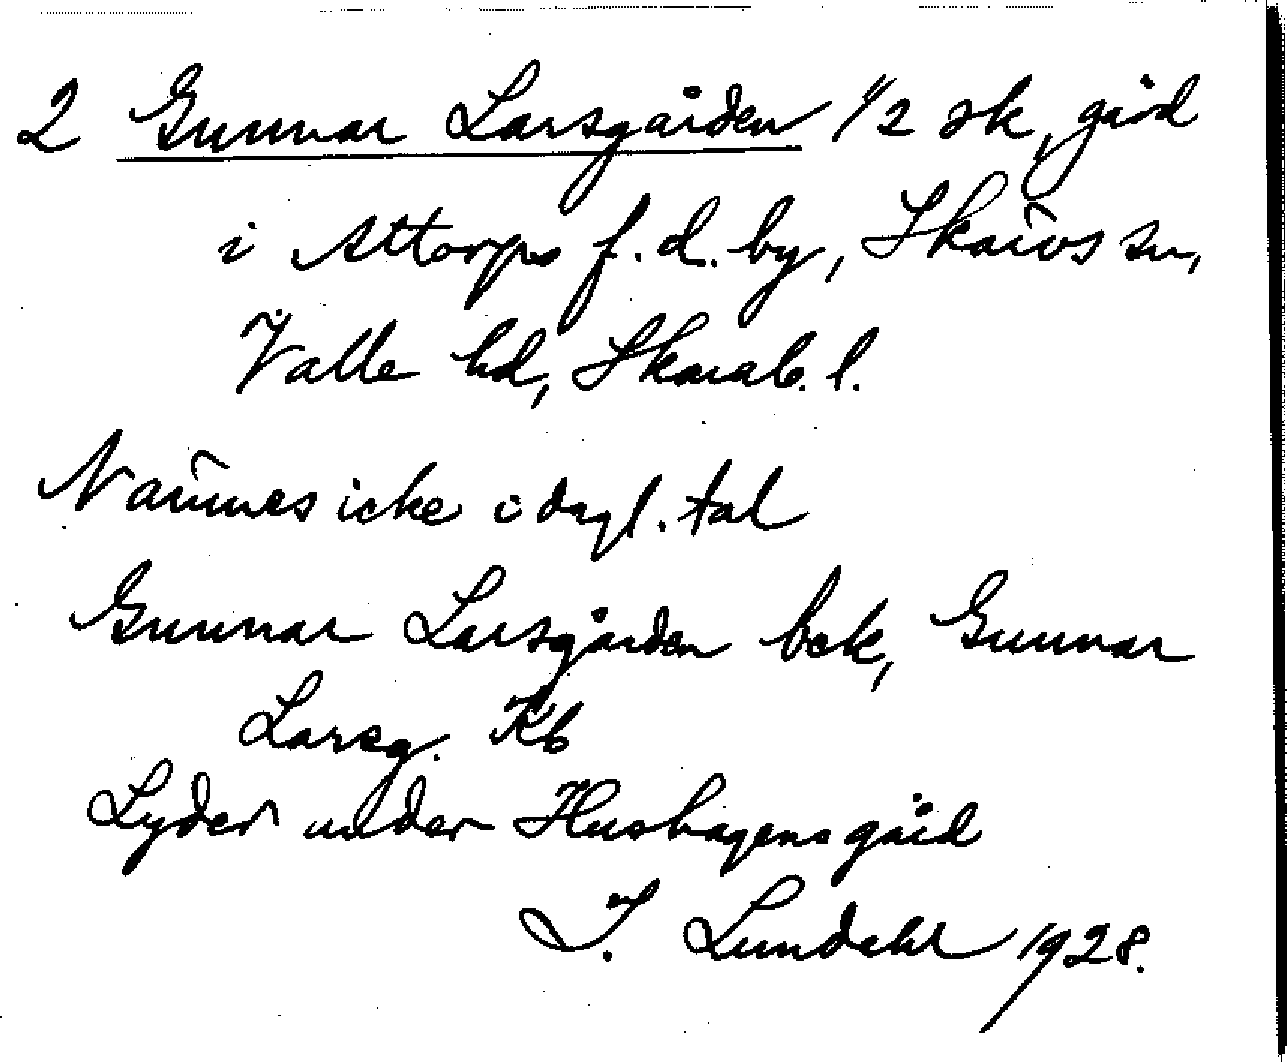 2 Gunnar Larsgården 1/2 sk, gård
i Attorps f.d. by, Skärvs sn,
Valle hd, Skarab. l.
Nämnes icke i dagl. tal
Gunnar Larsgården bck, Gunnar
Larsg. Kb
Lyder under Hushagens gård
I. Lundahl 1928.